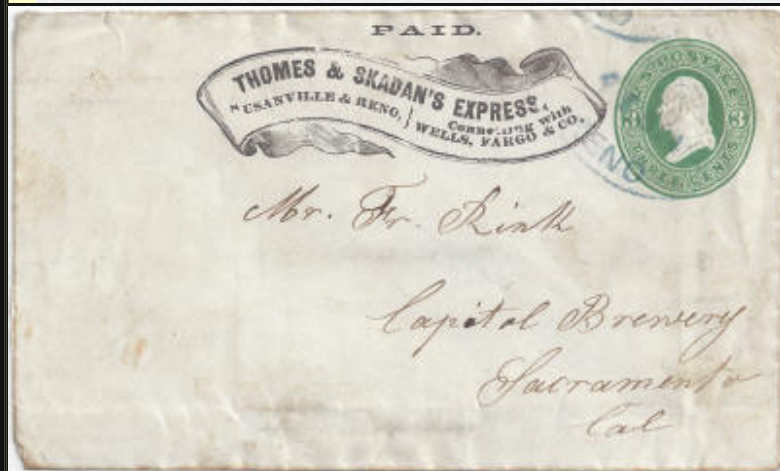 PAID.
THOMES & SKADAN'S EXPRESS,
SUSANVILLE & RENO, } Connecting with
WELLS, FARGO & CO.
U.S. POSTAGE
3 3
THREE CENTS
RENO
Mr. Fr. Rink
Capitol Brewery
Sacramento
Cal